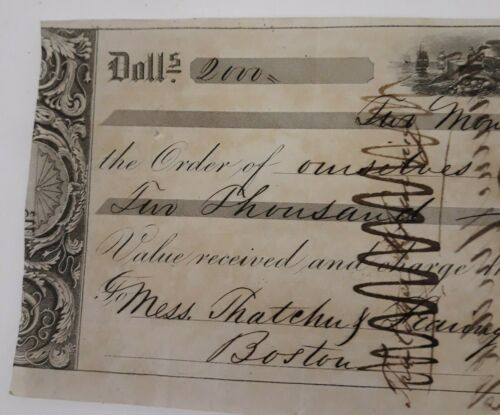 Doll.s 2000
Two Mon
the Order of ourselves
Two Thousand
Value received and charge
To Mess. Thatcher &
Boston